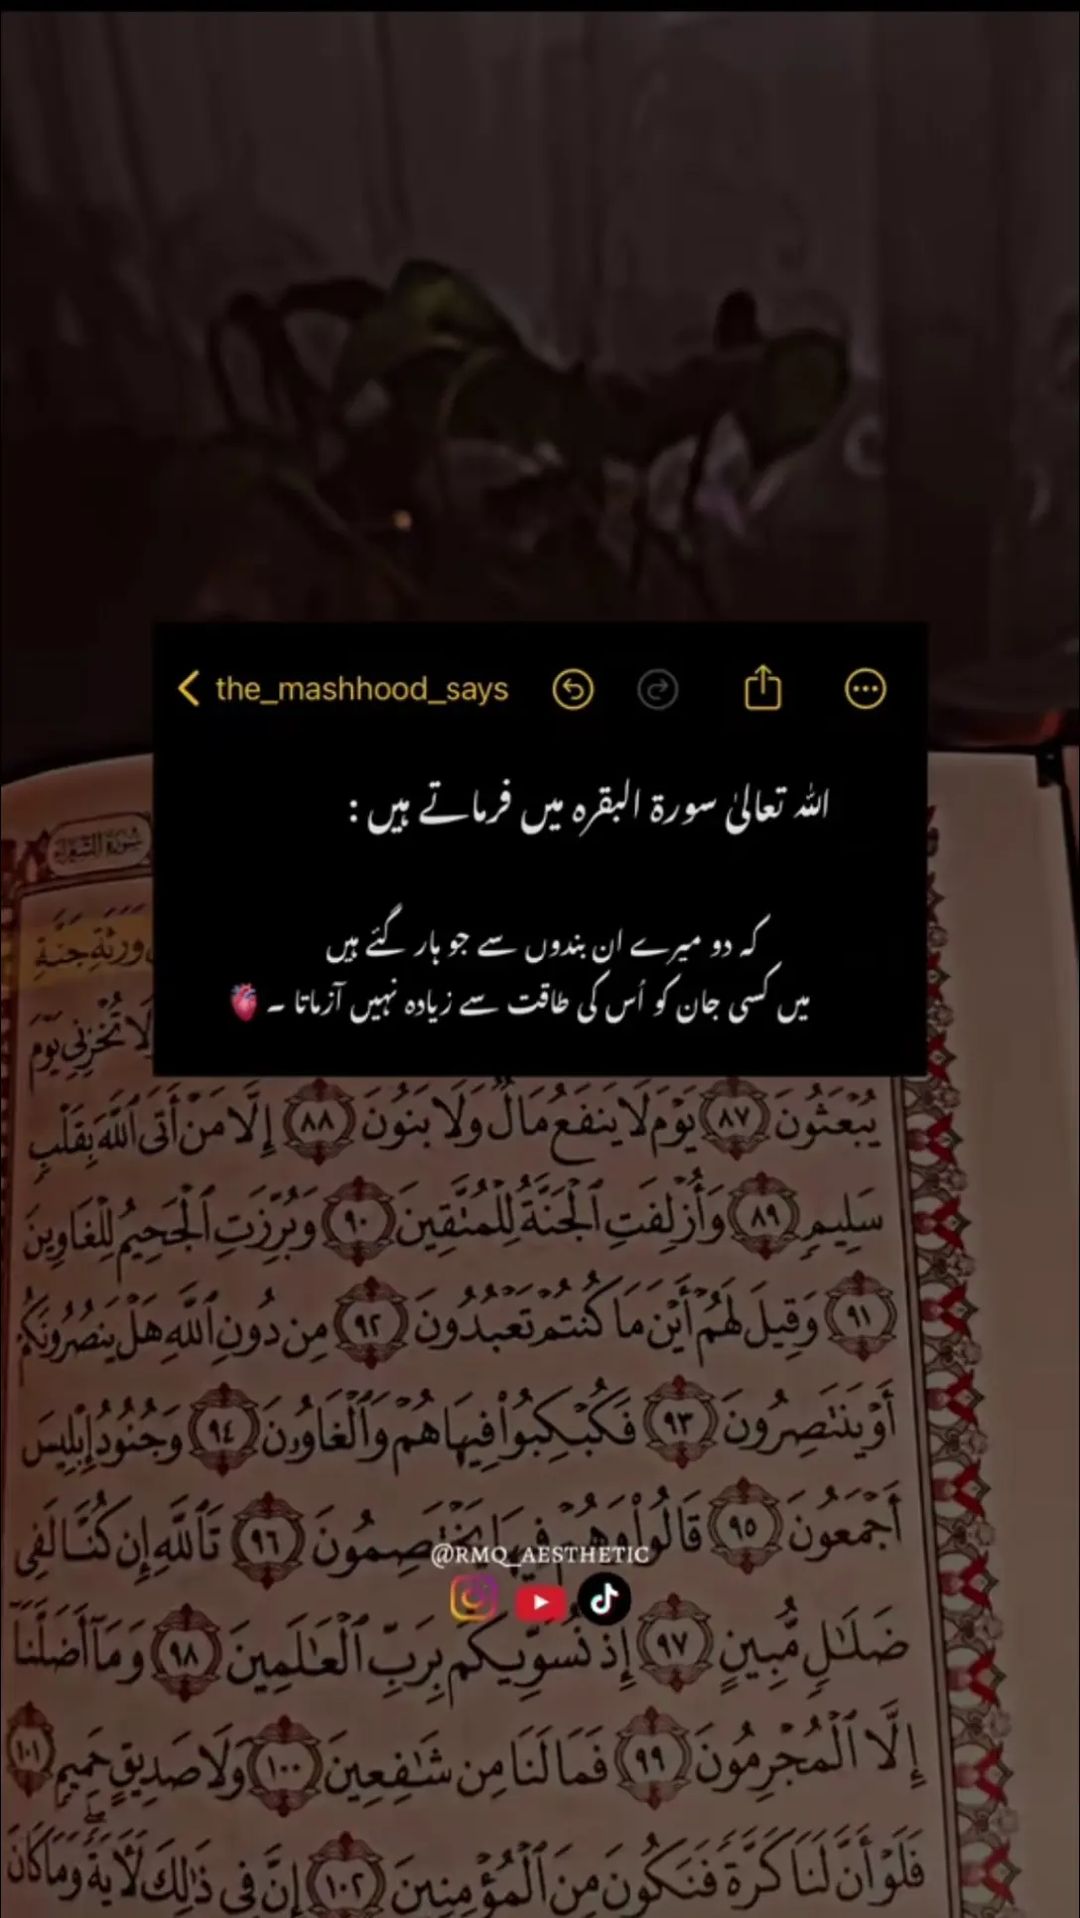 the_mashhood_says
اللہ تعالیٰ سورۃ البقرہ میں فرماتے ہیں :
کہ دو میرے ان بندوں سے جو ہار گئے ہیں
میں کسی جان کو اُس کی طاقت سے زیادہ نہیں آزماتا ۔
سُورَةُ الشُّعَرَاءِ
وَرَثَةِ جَنَّةِ
لَا تُخْزِنِي يَوْمَ
يُبْعَثُونَ ٨٧ يَوْمَ لَا يَنفَعُ مَالٌ وَلَا بَنُونَ ٨٨ إِلَّا مَنْ أَتَى ٱللَّهَ بِقَلْبٍ
سَلِيمٍ ٨٩ وَأُزْلِفَتِ ٱلْجَنَّةُ لِلْمُتَّقِينَ ٩٠ وَبُرِّزَتِ ٱلْجَحِيمُ لِلْغَاوِينَ
٩١ وَقِيلَ لَهُمْ أَيْنَ مَا كُنتُمْ تَعْبُدُونَ ٩٢ مِن دُونِ ٱللَّهِ هَلْ يَنصُرُونَكُمْ
أَوْ يَنتَصِرُونَ ٩٣ فَكُبْكِبُوا۟ فِيهَا هُمْ وَٱلْغَاوُۥنَ ٩٤ وَجُنُودُ إِبْلِيسَ
أَجْمَعُونَ ٩٥ قَالُوا۟ وَهُمْ فِيهَا يَخْتَصِمُونَ ٩٦ تَٱللَّهِ إِن كُنَّا لَفِى
@RMQ_AESTHETIC
ضَلَـٰلٍ مُّبِينٍ ٩٧ إِذْ نُسَوِّيكُم بِرَبِّ ٱلْعَـٰلَمِينَ ٩٨ وَمَآ أَضَلَّنَآ
إِلَّا ٱلْمُجْرِمُونَ ٩٩ فَمَا لَنَا مِن شَـٰفِعِينَ ١٠٠ وَلَا صَدِيقٍ حَمِيمٍ ١٠١
فَلَوْ أَنَّ لَنَا كَرَّةً فَنَكُونَ مِنَ ٱلْمُؤْمِنِينَ ١٠٢ إِنَّ فِى ذَٰلِكَ لَـَٔايَةً وَمَا كَانَ